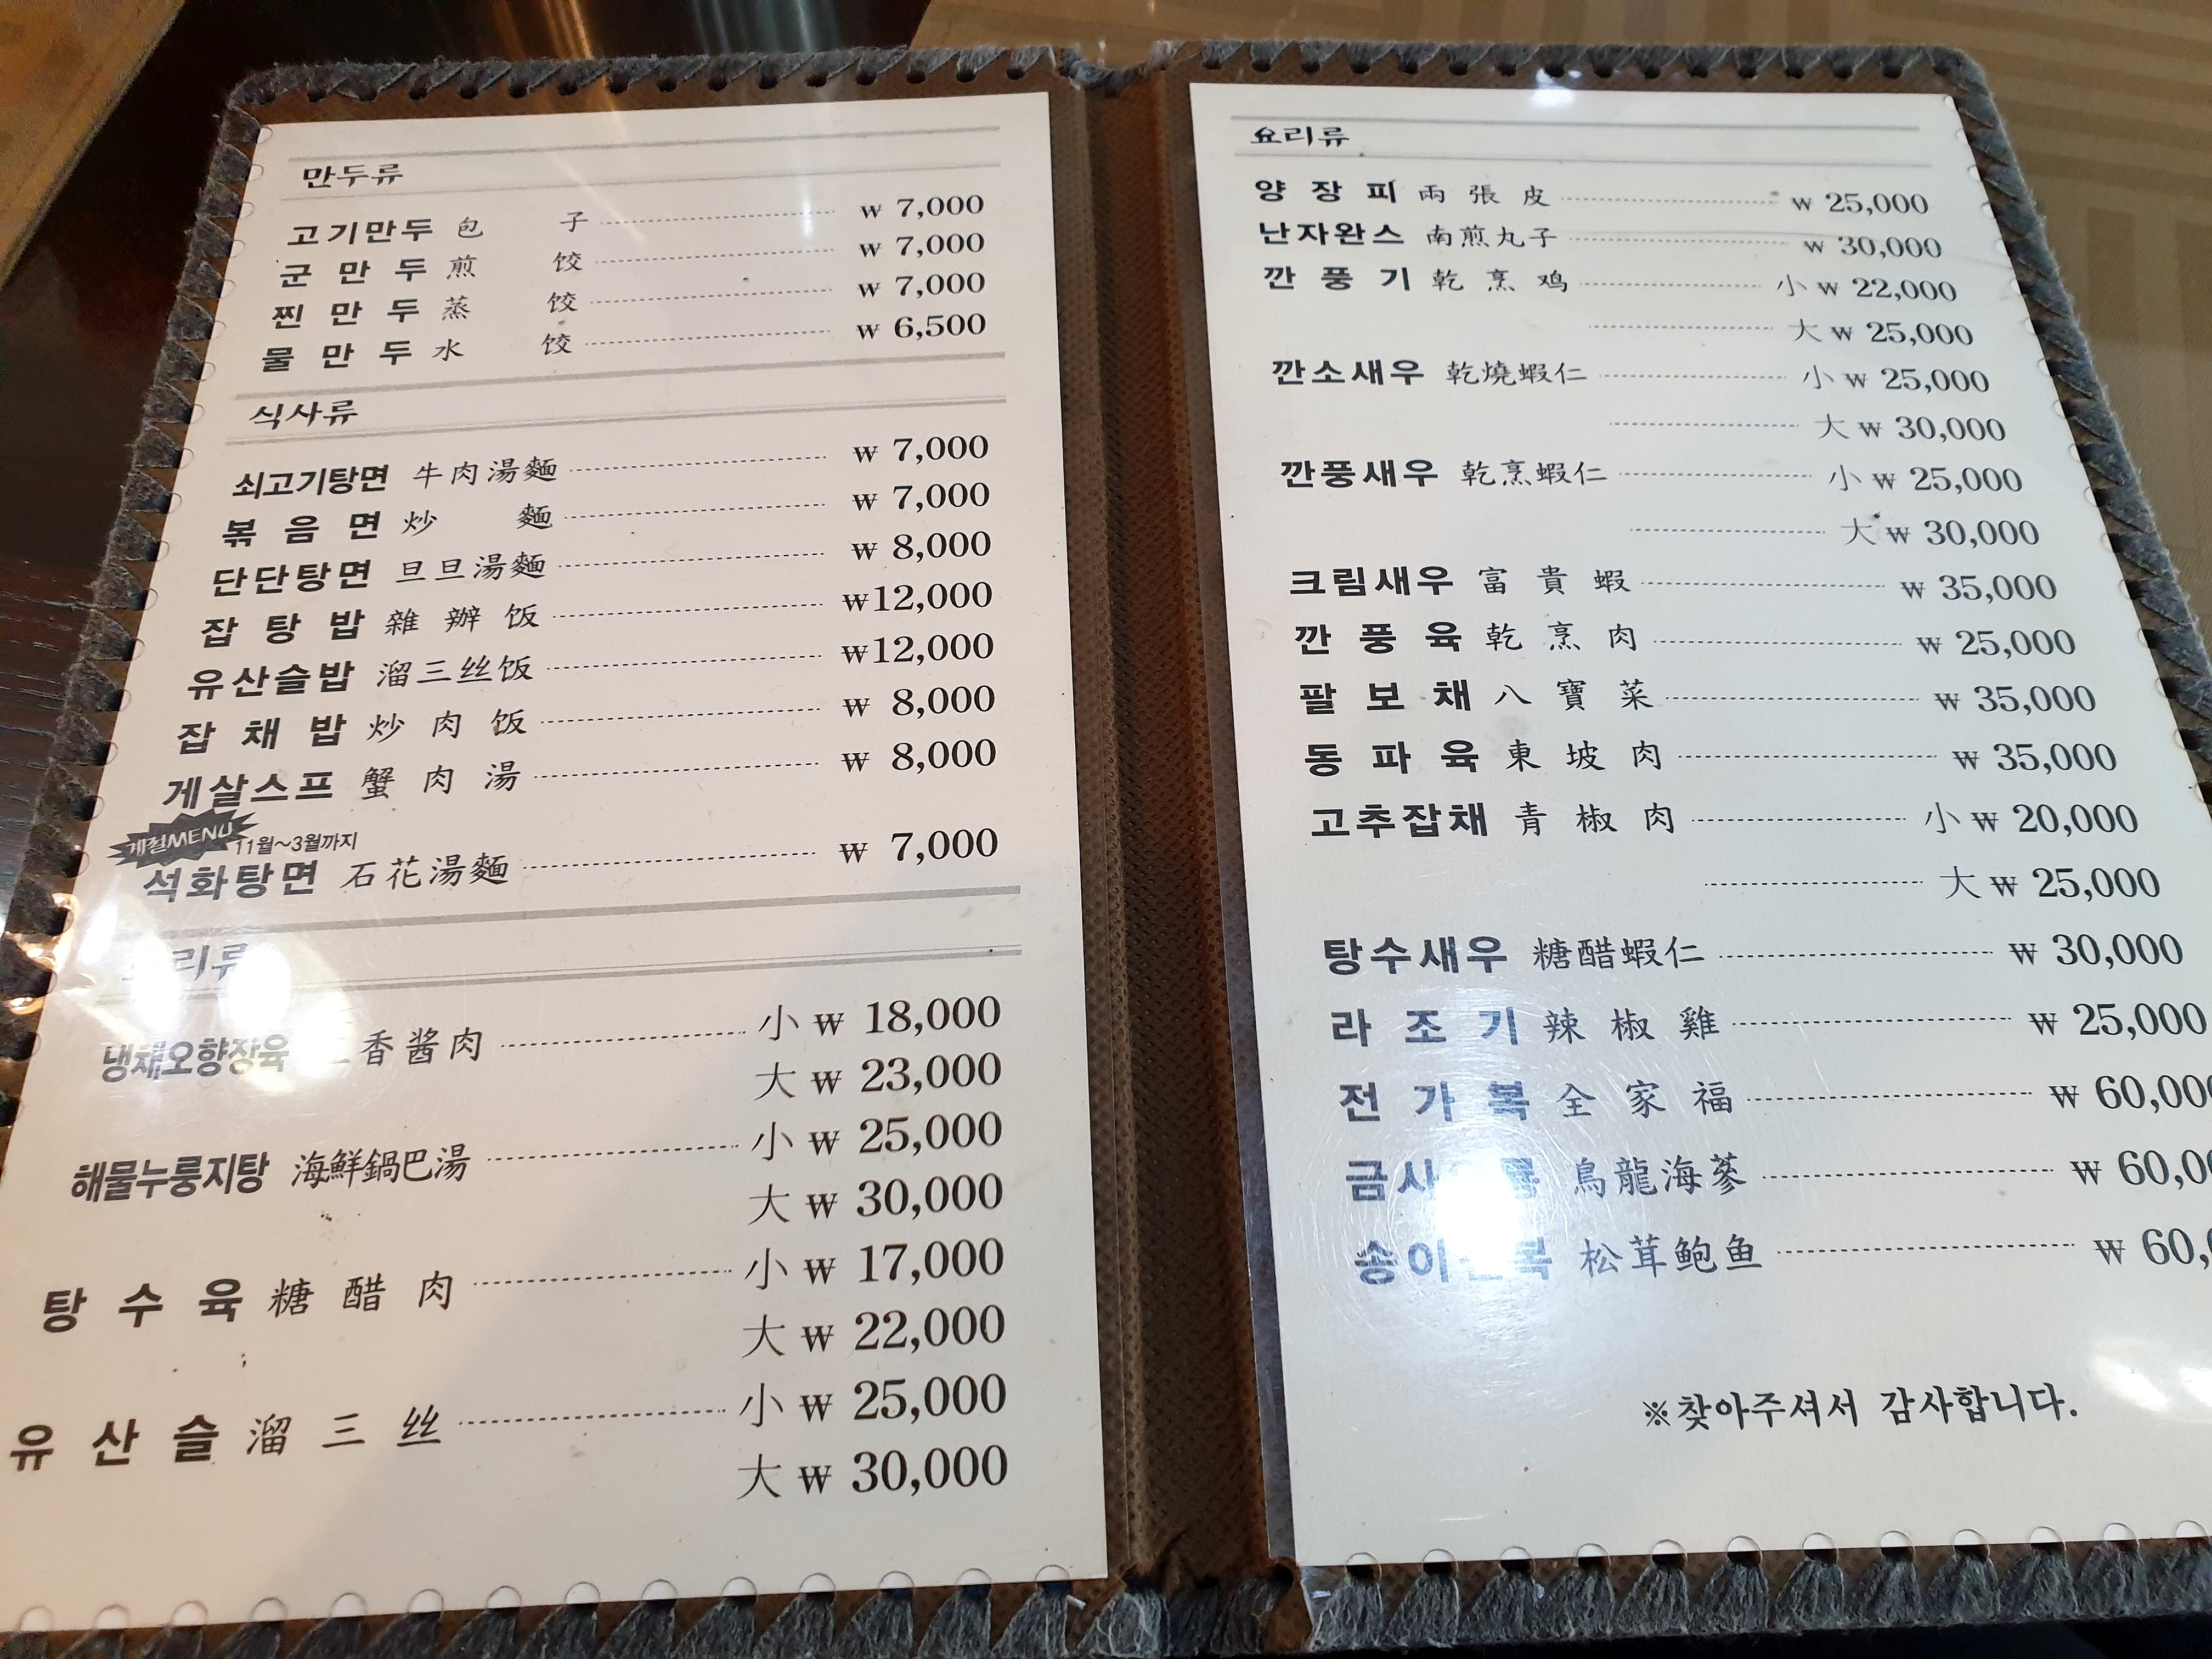 만두류
고기만두 包 子 ₩ 7,000
군 만 두 煎 饺 ₩ 7,000
찐 만 두 蒸 饺 ₩ 7,000
물 만 두 水 饺 ₩ 6,500
식사류
쇠고기탕면 牛肉湯麵 ₩ 7,000
볶 음 면 炒 麵 ₩ 7,000
단단탕면 旦旦湯麵 ₩ 8,000
잡 탕 밥 雜 辦 饭 ₩12,000
유산슬밥 溜三丝饭 ₩12,000
잡 채 밥 炒 肉 饭 ₩ 8,000
게살스프 蟹 肉 湯 ₩ 8,000
계절MENU 11월~3월까지
석화탕면 石花湯麵 ₩ 7,000
리류
냉채오향장육 香酱肉 小 ₩ 18,000
大 ₩ 23,000
해물누룽지탕 海鮮鍋巴湯 小 ₩ 25,000
大 ₩ 30,000
탕 수 육 糖 醋 肉 小 ₩ 17,000
大 ₩ 22,000
유 산 슬 溜 三 丝 小 ₩ 25,000
大 ₩ 30,000
요리류
양 장 피 兩 張 皮 ₩ 25,000
난자완스 南煎丸子 ₩ 30,000
깐 풍 기 乾 烹 鸡 小 ₩ 22,000
大 ₩ 25,000
깐소새우 乾燒蝦仁 小 ₩ 25,000
大 ₩ 30,000
깐풍새우 乾烹蝦仁 小 ₩ 25,000
大 ₩ 30,000
크림새우 富 貴 蝦 ₩ 35,000
깐 풍 육 乾 烹 肉 ₩ 25,000
팔 보 채 八 寶 菜 ₩ 35,000
동 파 육 東 坡 肉 ₩ 35,000
고추잡채 青 椒 肉 小 ₩ 20,000
大 ₩ 25,000
탕수새우 糖醋蝦仁 ₩ 30,000
라 조 기 辣 椒 雞 ₩ 25,000
전 가 복 全 家 福 ₩ 60,000
금사 룡 鳥龍海蔘 ₩ 60,0
송이 복 松茸鲍鱼 ₩ 60,
※찾아주셔서 감사합니다.